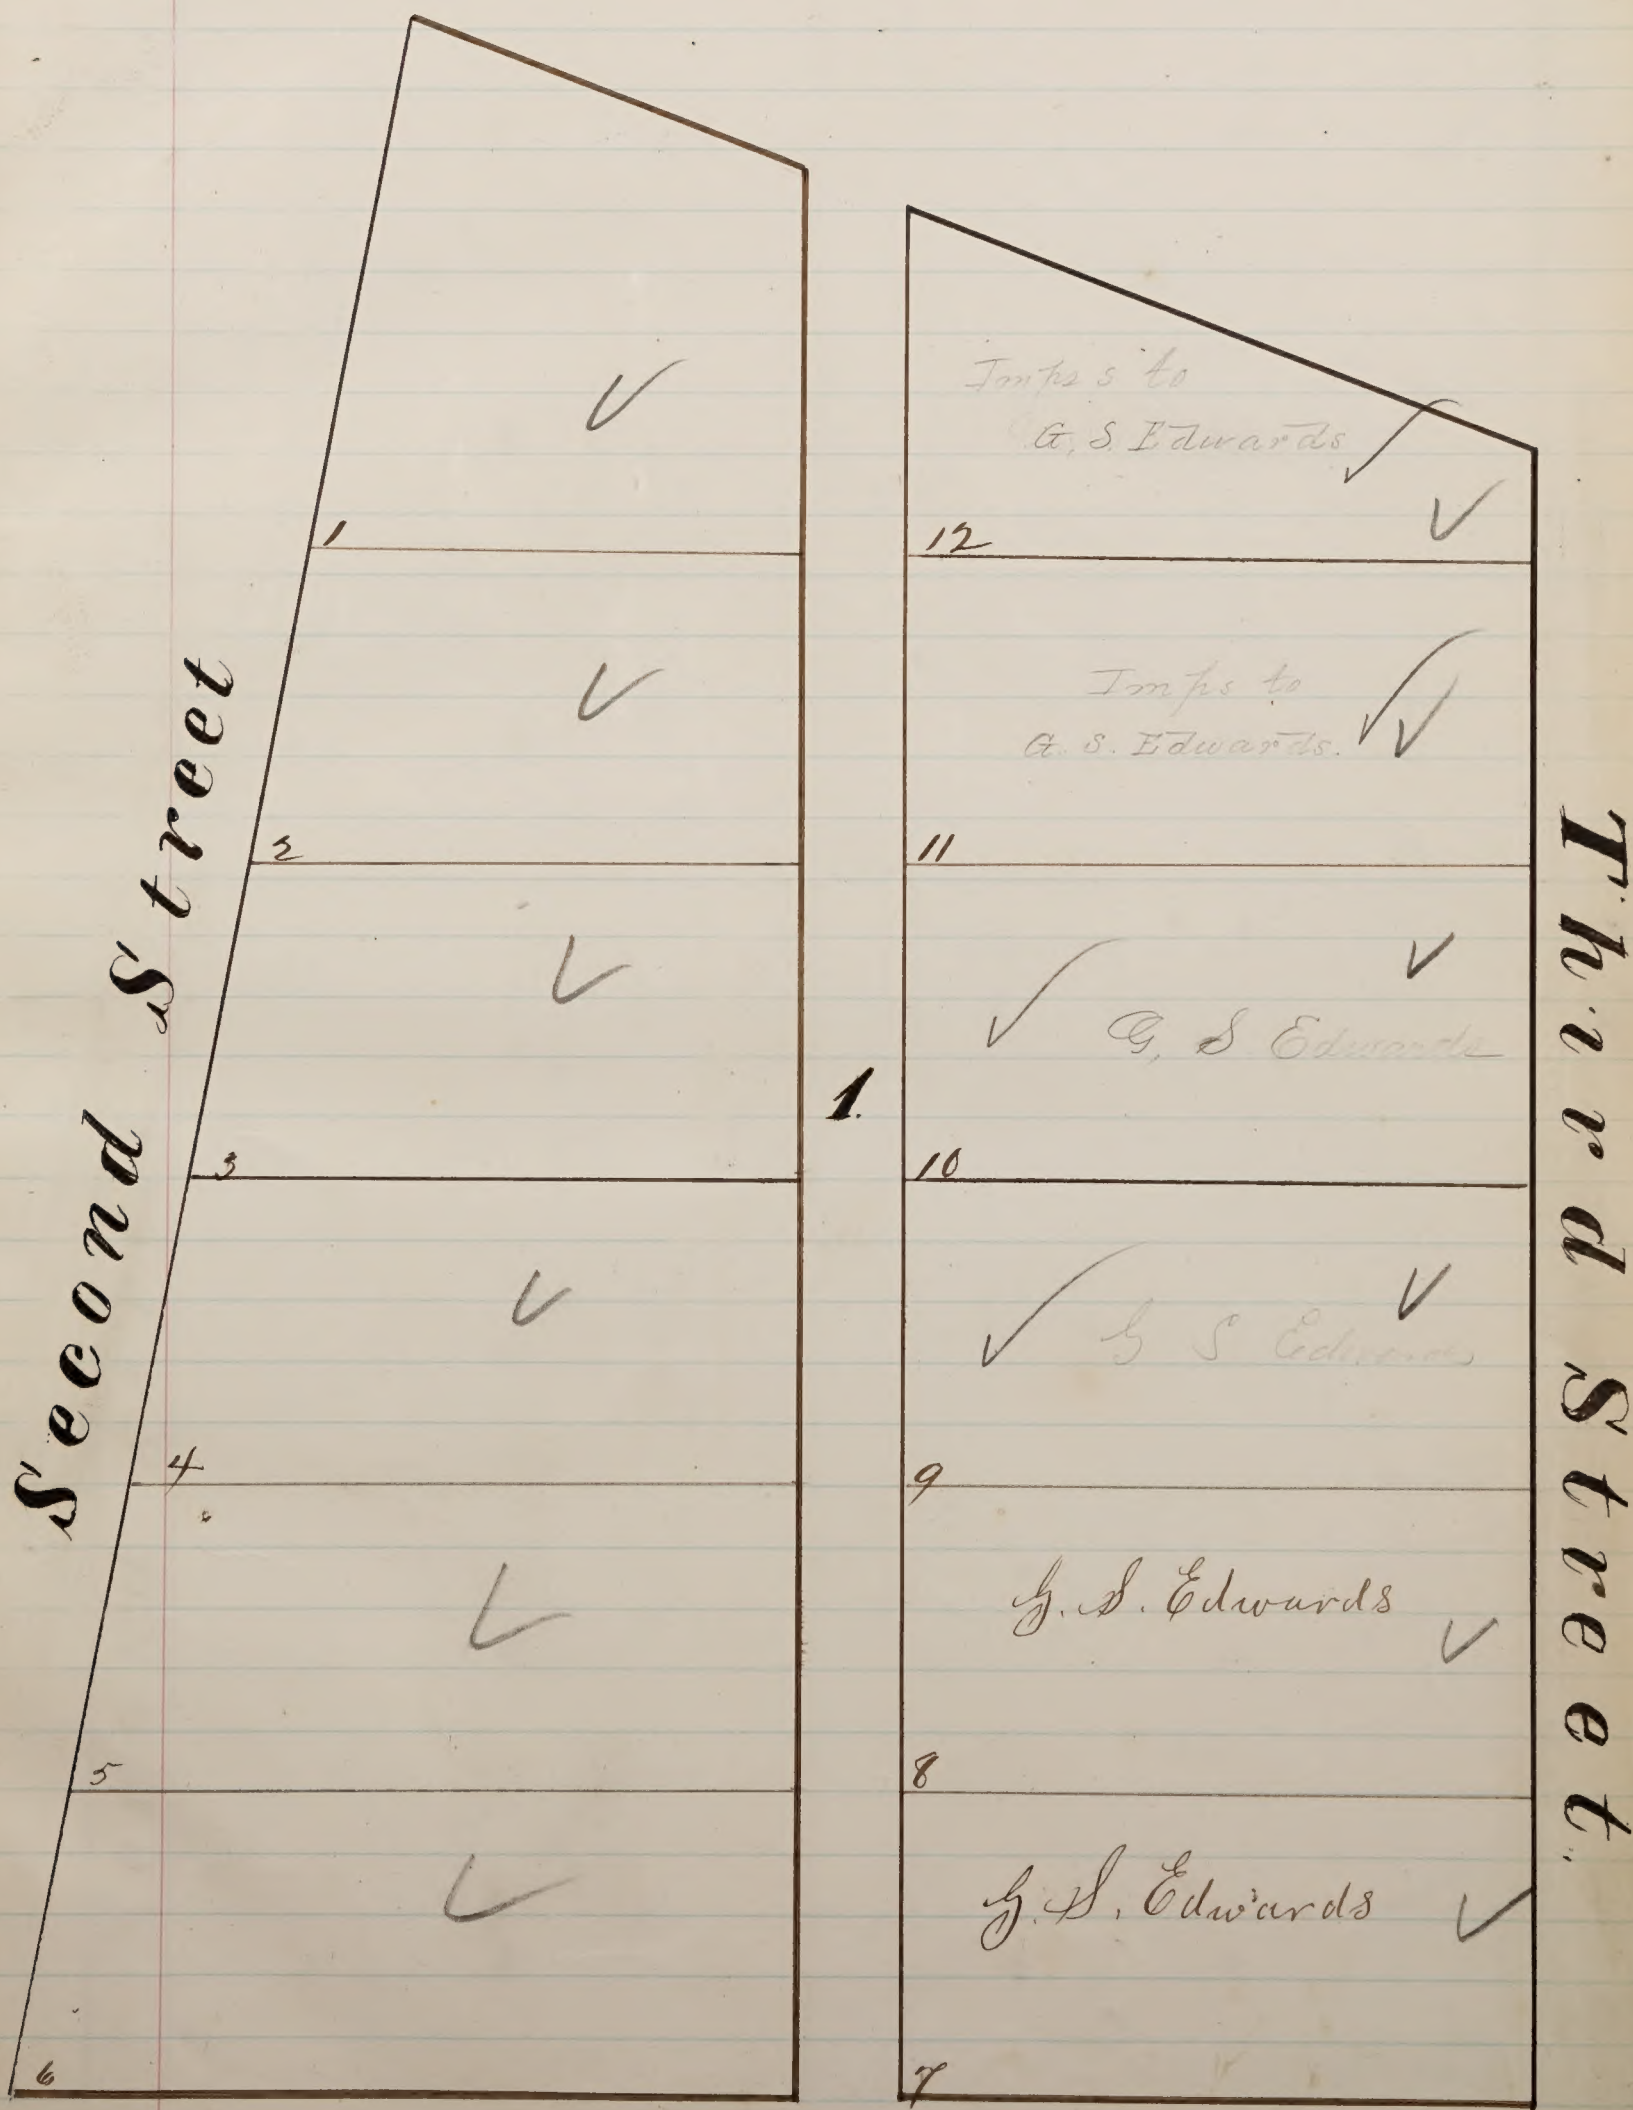 Second Street
1
2
3
4
5
6
1.
Imps to
G. S. Edwards
12
Imps to
G. S. Edwards.
11
G. S Edwards
10
G S Edwards
9
G. S. Edwards
8
G. S. Edwards
7
Third Street.